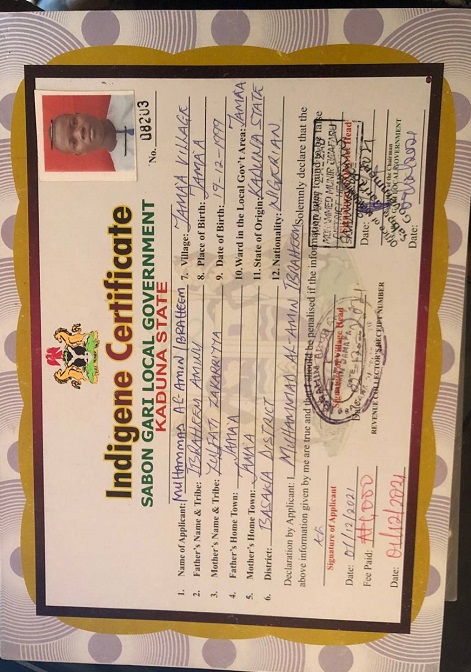 No. 08203
Indigene Certificate
SABON GARI LOCAL GOVERNMENT
KADUNA STATE
1. Name of Applicant: MUHAMMAD AL-AMIN IBRAHEEM
2. Father's Name & Tribe: IBRAHEEM AMINU
3. Mother's Name & Tribe: ZULFATI ZAKARIYYA
4. Father's Home Town: JAMA'A
5. Mother's Home Town: JAMA'A
6. District: BASAWA DISTRICT
7. Village: JAMA'A VILLAGE
8. Place of Birth: JAMA'A
9. Date of Birth: 19-12-1999
10. Ward in the Local Gov't Area: JAMA'A
11. State of Origin: KADUNA STATE
12. Nationality: NIGERIAN
Declaration by Applicant: I MUHAMMAD AL-AMIN IBRAHEEM Solemnly declare that the
above information given by me are true and that I should be penalised if the information are found to be false
Signature of Applicant
Date: 01/12/2021
Village Head
Date:
Head
Date:
Fee Paid: ₦1,000
REVENUE COLLECTOR'S RECEIPT NUMBER
LOCAL GOVERNMENT
Date: 01/12/2021
Date: